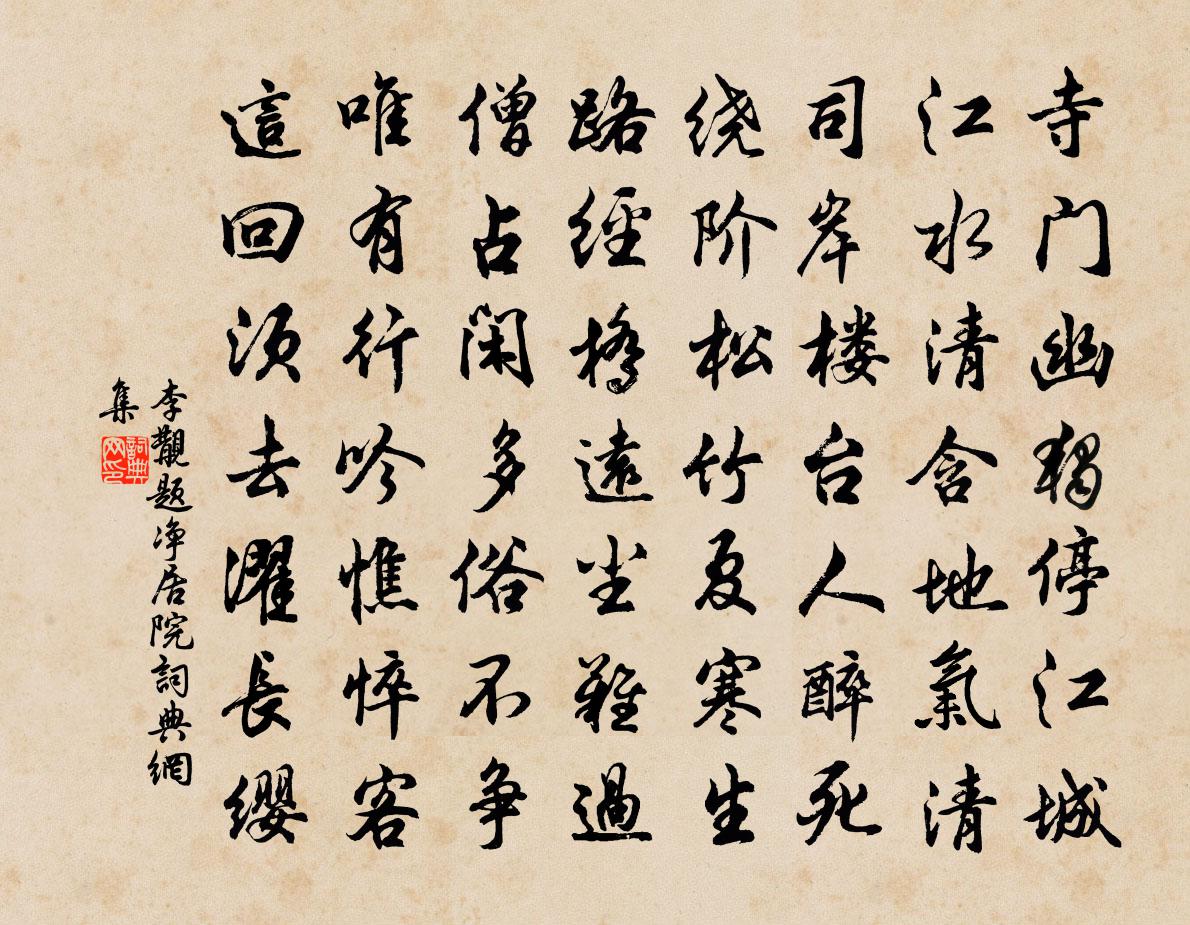 寺门幽獨停江城
江水清含地氣清
司岸楼台人醉死
绕阶松竹夏寒生
路經橋遠尘難過
僧占闲多俗不争
唯有行吟憔悴客
這回须去濯長缨
李覯题净居院詞典網
集
詞典网印